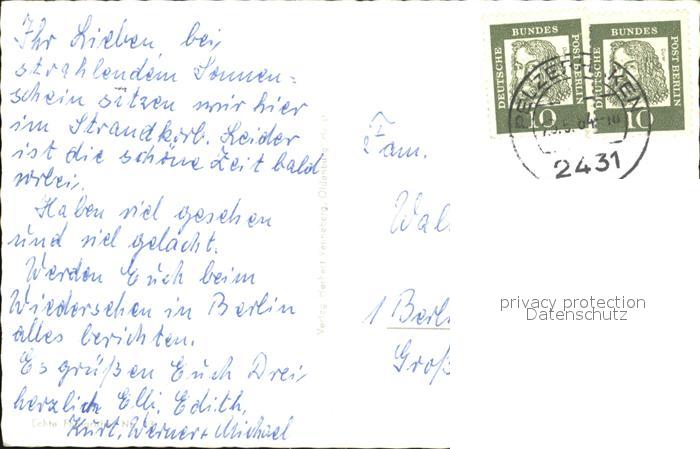 Ihr Lieben, bei
strahlendem Sonnen=
schein sitzen wir hier
im Strandkorb. Leider
ist die schöne Zeit bald
vorbei.
Haben viel gesehen
und viel gelacht.
Werden Euch beim
Wiedersehen in Berlin
alles berichten.
Es grüßen Euch Drei,
herzlich Elli, Edith,
Kurt, Werner + Michael
Verlag Herbert Oldenburg
Fam.
Wal
1 Berl
Groß
DEUTSCHE BUNDES POST BERLIN
10
DEUTSCHE BUNDES POST BERLIN
10
PELZERHAKEN
2431
privacy protection
Datenschutz